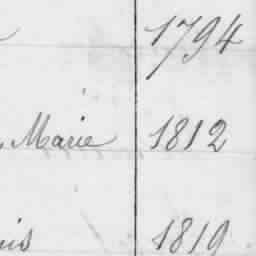 1794
, Marie 1812
is 1819